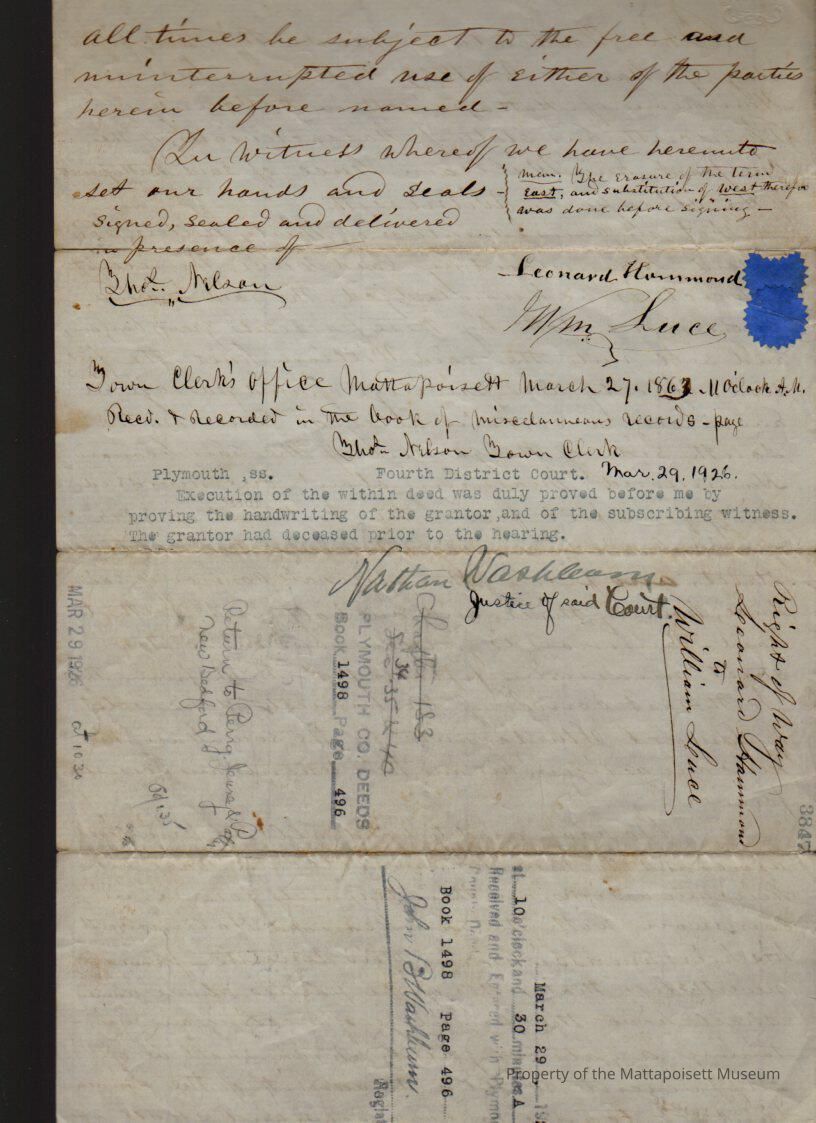 all times be subject to the free and
uninterrupted use of either of the parties
herein before named -
In witness whereof we have hereunto
set our hands and seals -
mem. The erasure of the term
East, and substitution of West therefor
was done before signing -
Signed, sealed and delivered
in presence of
Thos. Nelson
Leonard Hammond
Wm Luce
Town Clerk's office Mattapoisett March 27. 1863. 11 O'clock A.M.
Recd. & Recorded in the book of miscelaneous records - page
Thos. Nelson Town Clerk
Plymouth ,ss. Fourth District Court. Mar. 29, 1926.
Execution of the within deed was duly proved before me by
proving the handwriting of the grantor,and of the subscribing witness.
The grantor had deceased prior to the hearing.
Nathan Washburn
Justice of said Court.
Right of Way
Leonard Hammond
to
William Luce
3847
PLYMOUTH CO. DEEDS
Book 1498 Page 496
Return to Perry
New Bedford
MAR 29 1926 at 10 30
March 29
at 10 o'clock and 30 minutes A
Received and Entered with Plymo
Book 1498 Page 496
John B Washburn
Regist
Property of the Mattapoisett Museum